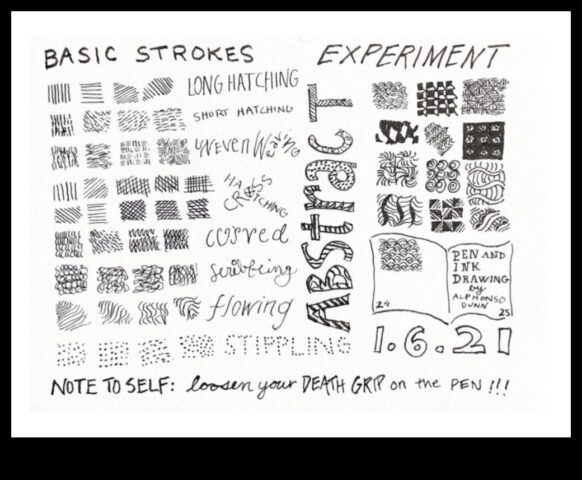 BASIC STROKES
LONG HATCHING
SHORT HATCHING
UNEVEN WEAVING
CROSS
HATCHING
CURVED
scribbling
flowing
STIPPLING
ABStract
EXPERIMENT
PEN AND
INK
DRAWING
by
ALPHONSO
DUNN
24
25
1.6.21
NOTE TO SELF: loosen your DEATH GRIP on the PEN!!!